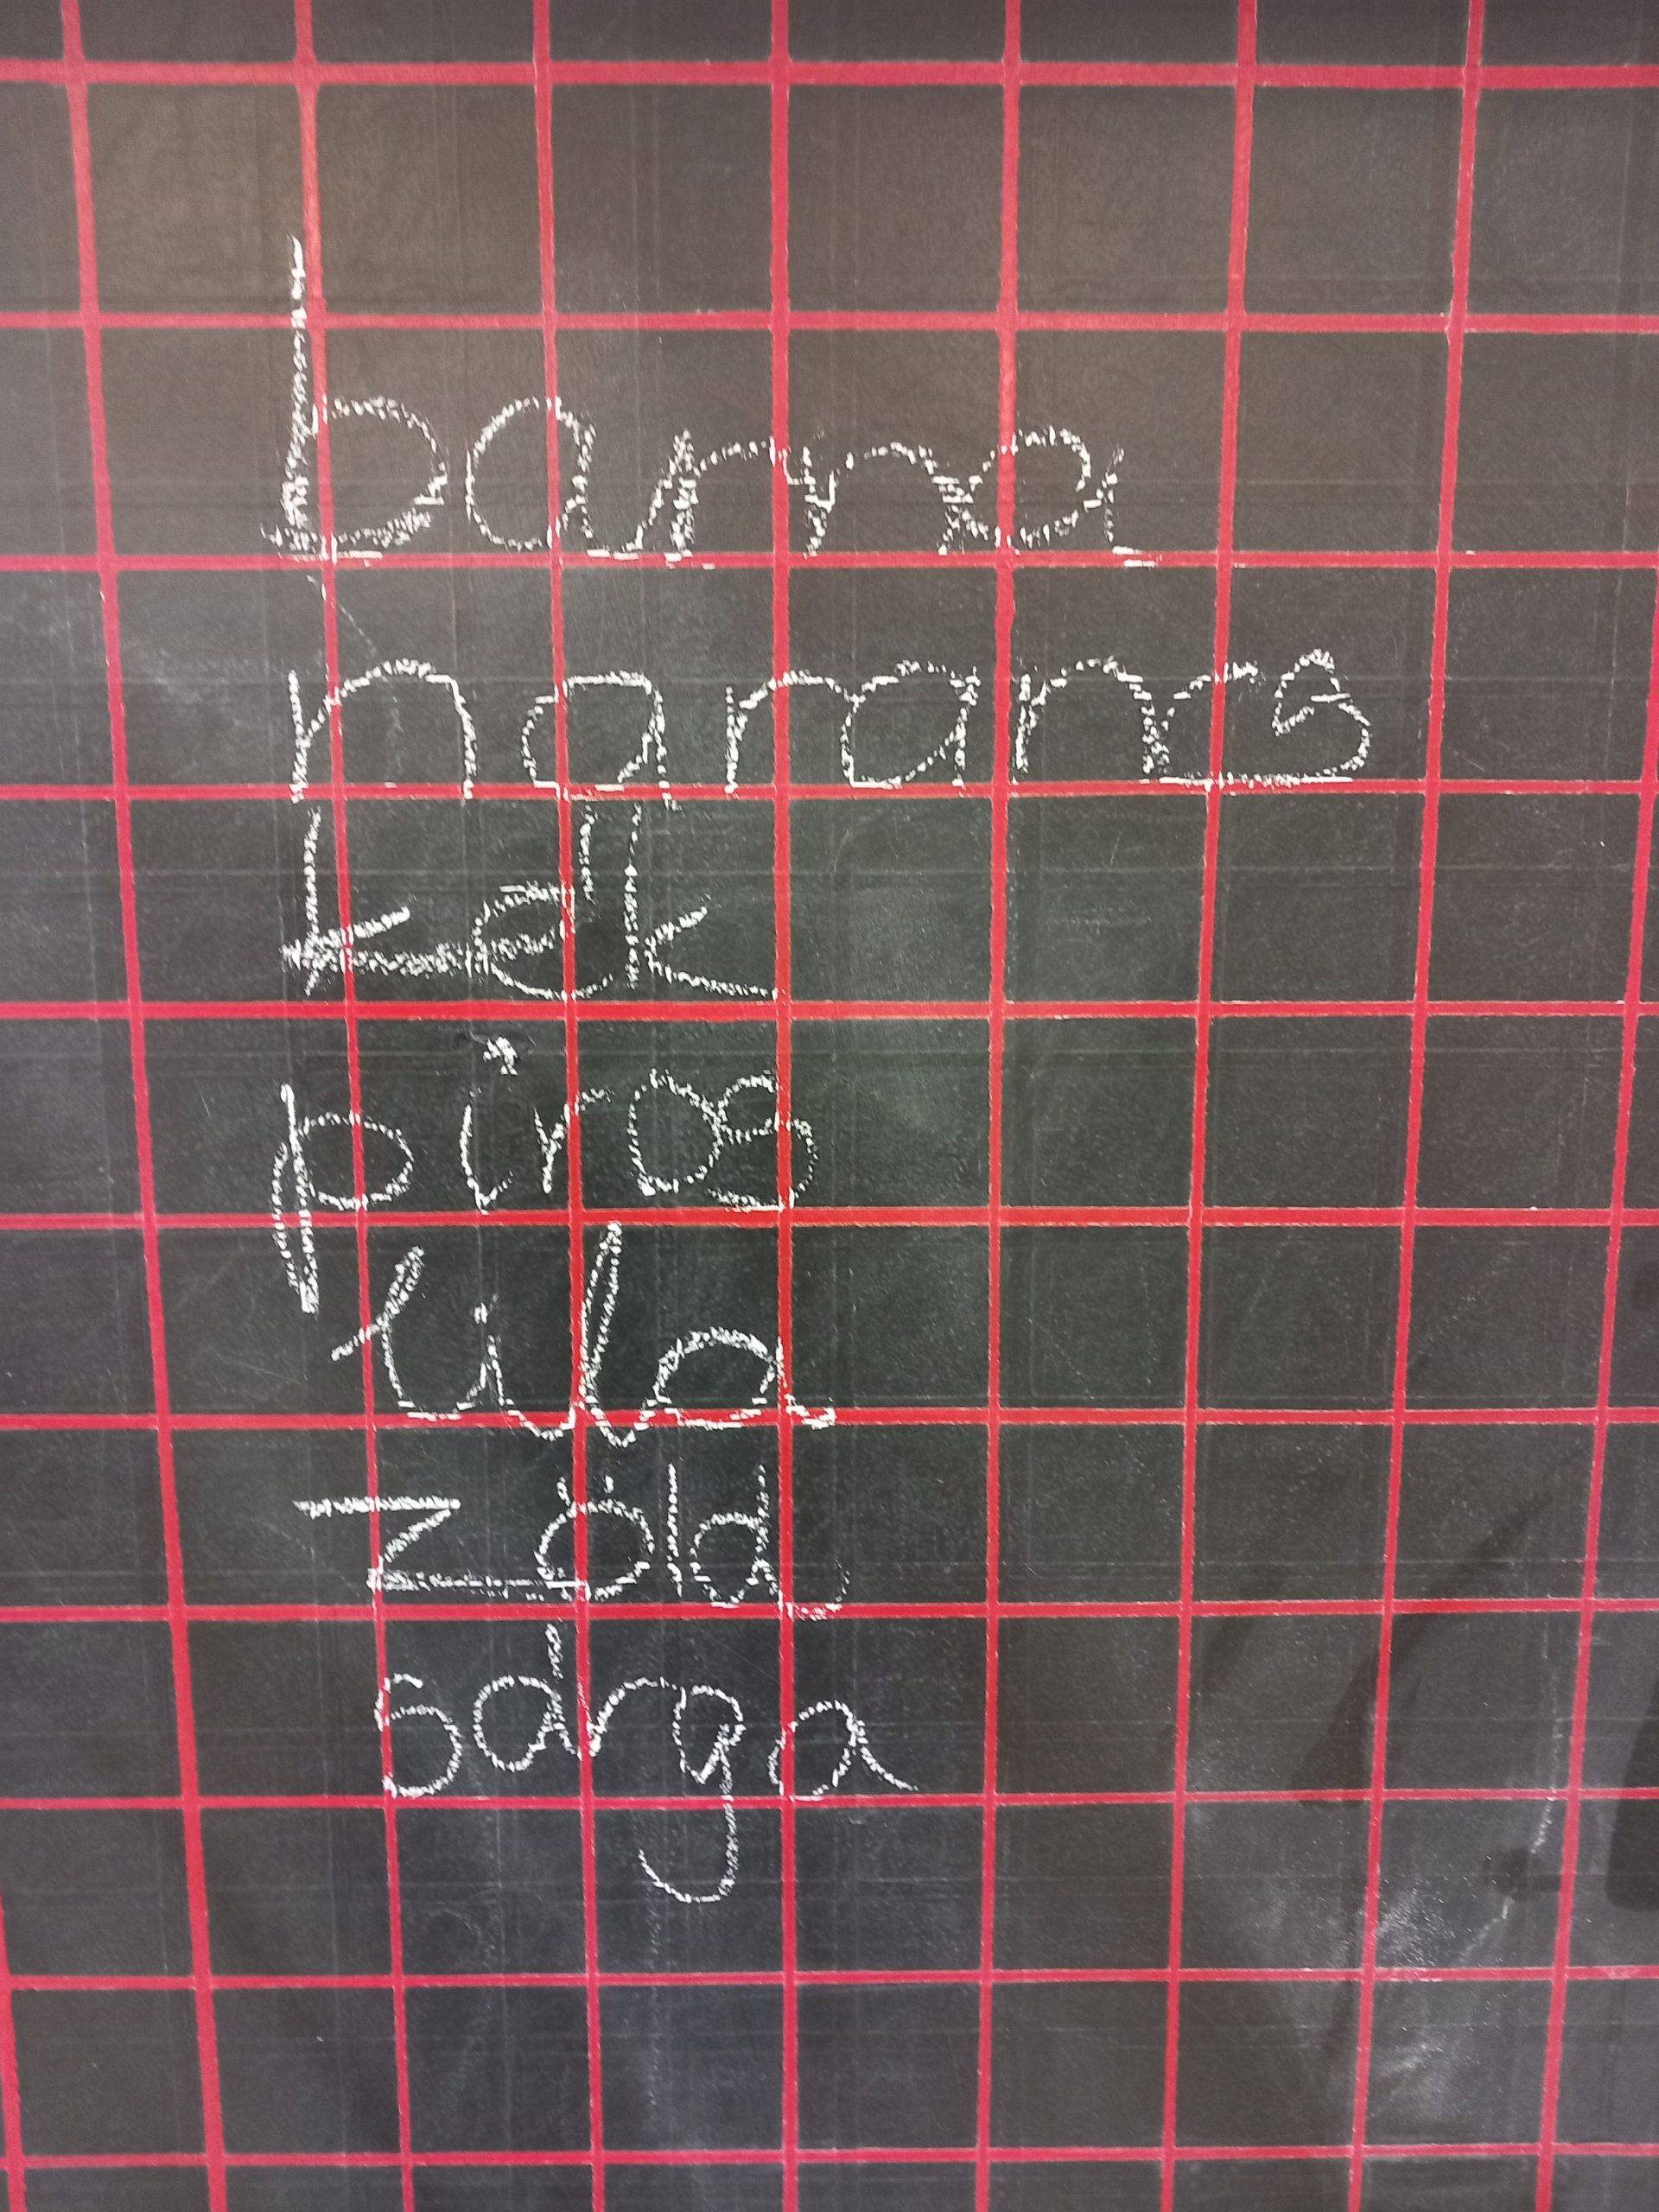 barna
narancs
kék
piros
lila
zöld
sárga